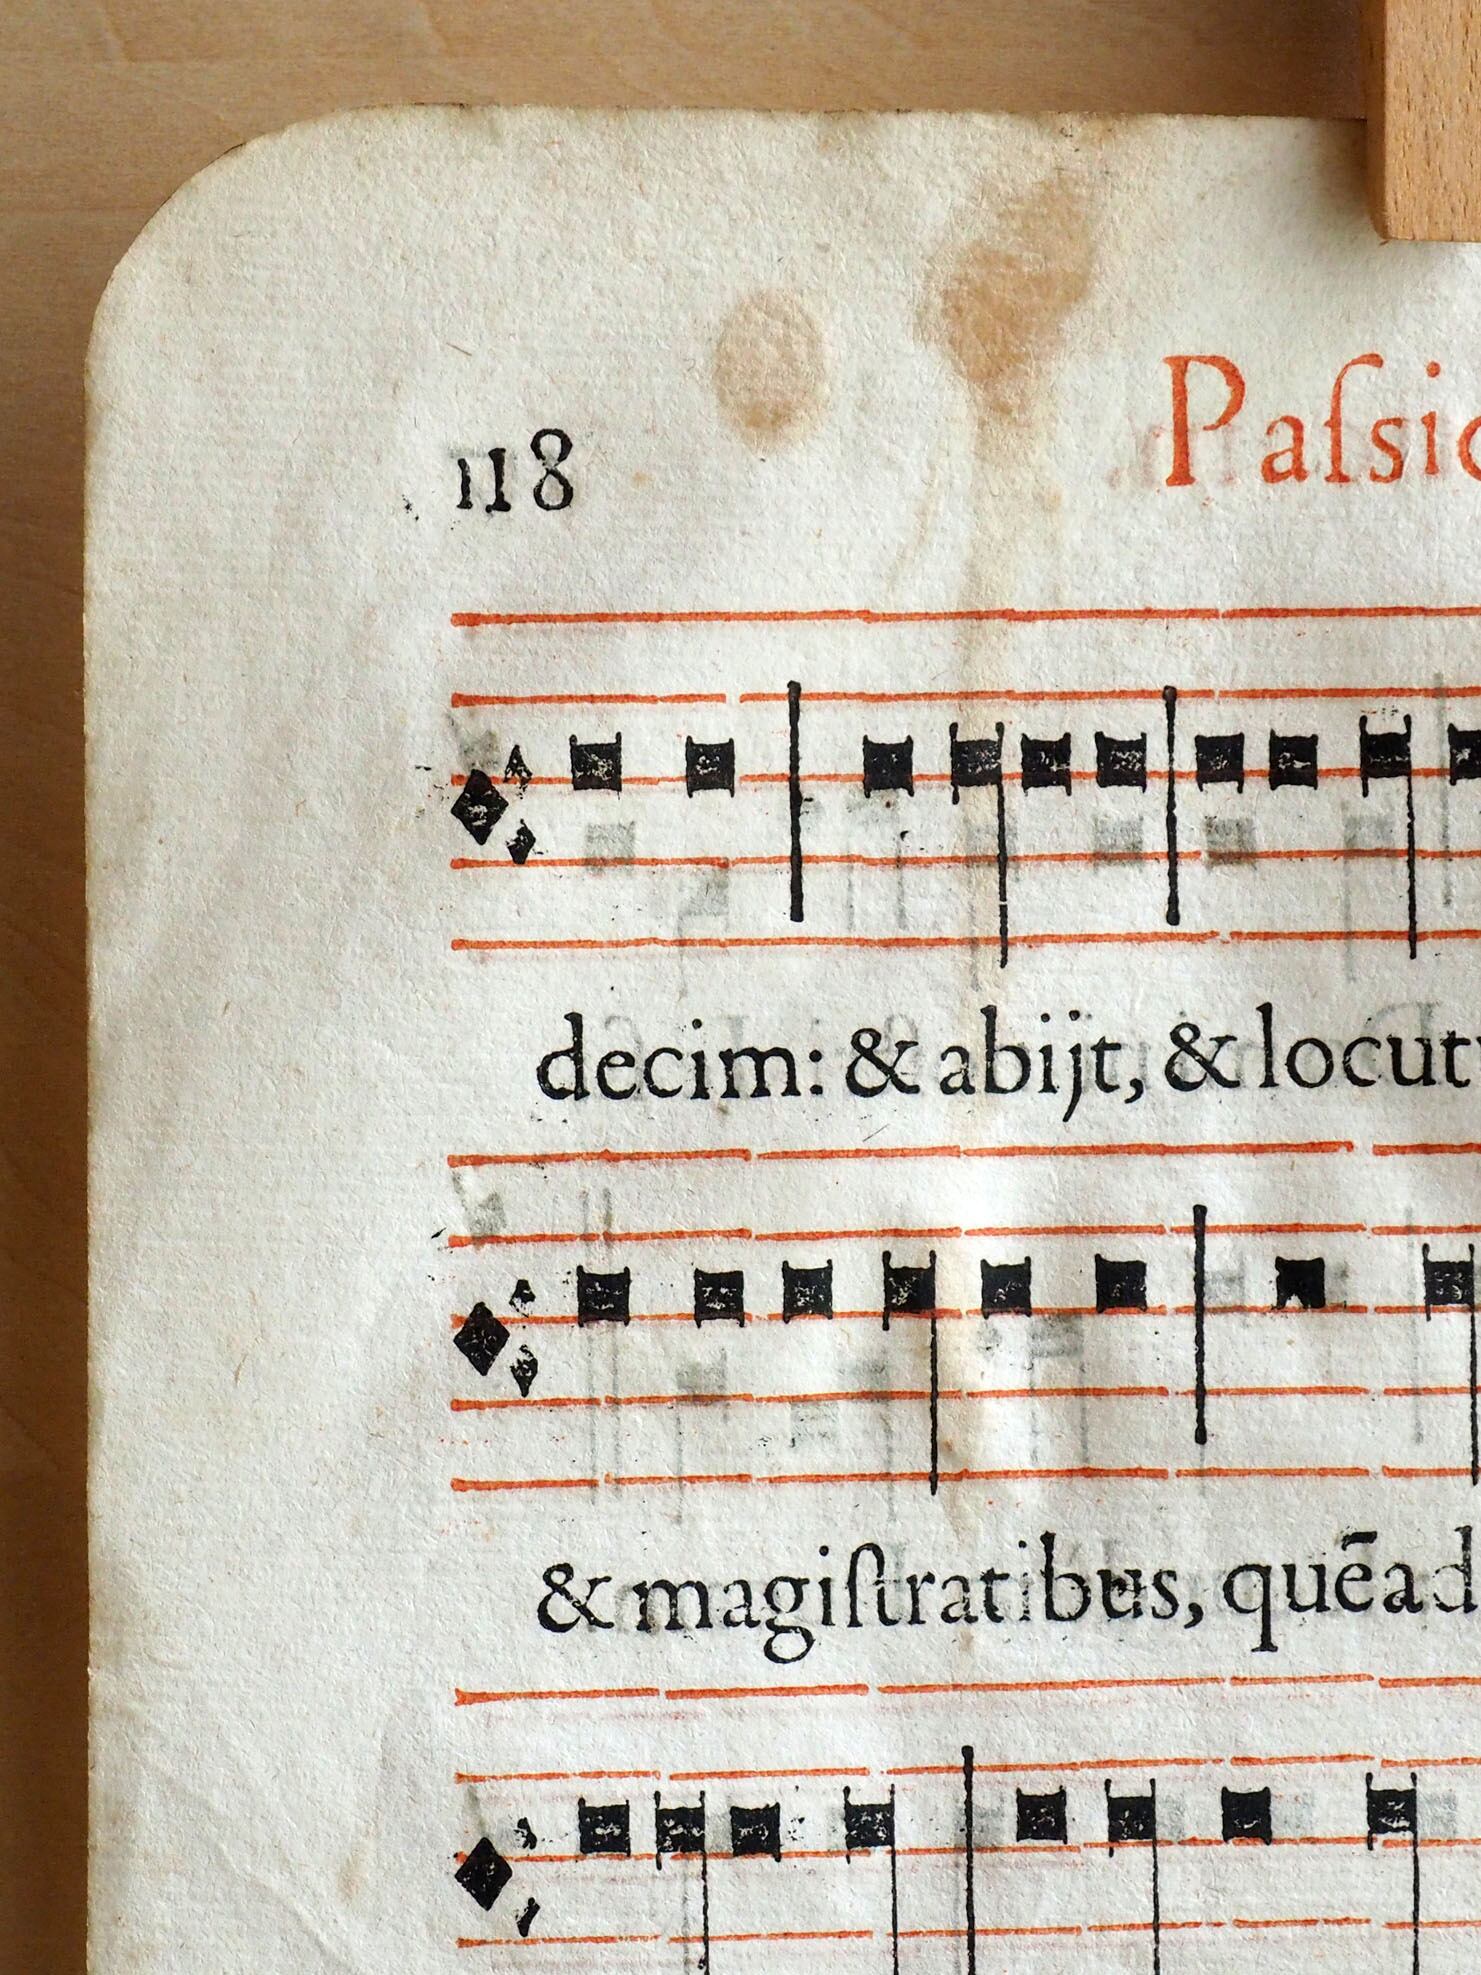 118
Paſsio
decim: & abijt, & locut
& magiſtratibus, quēad